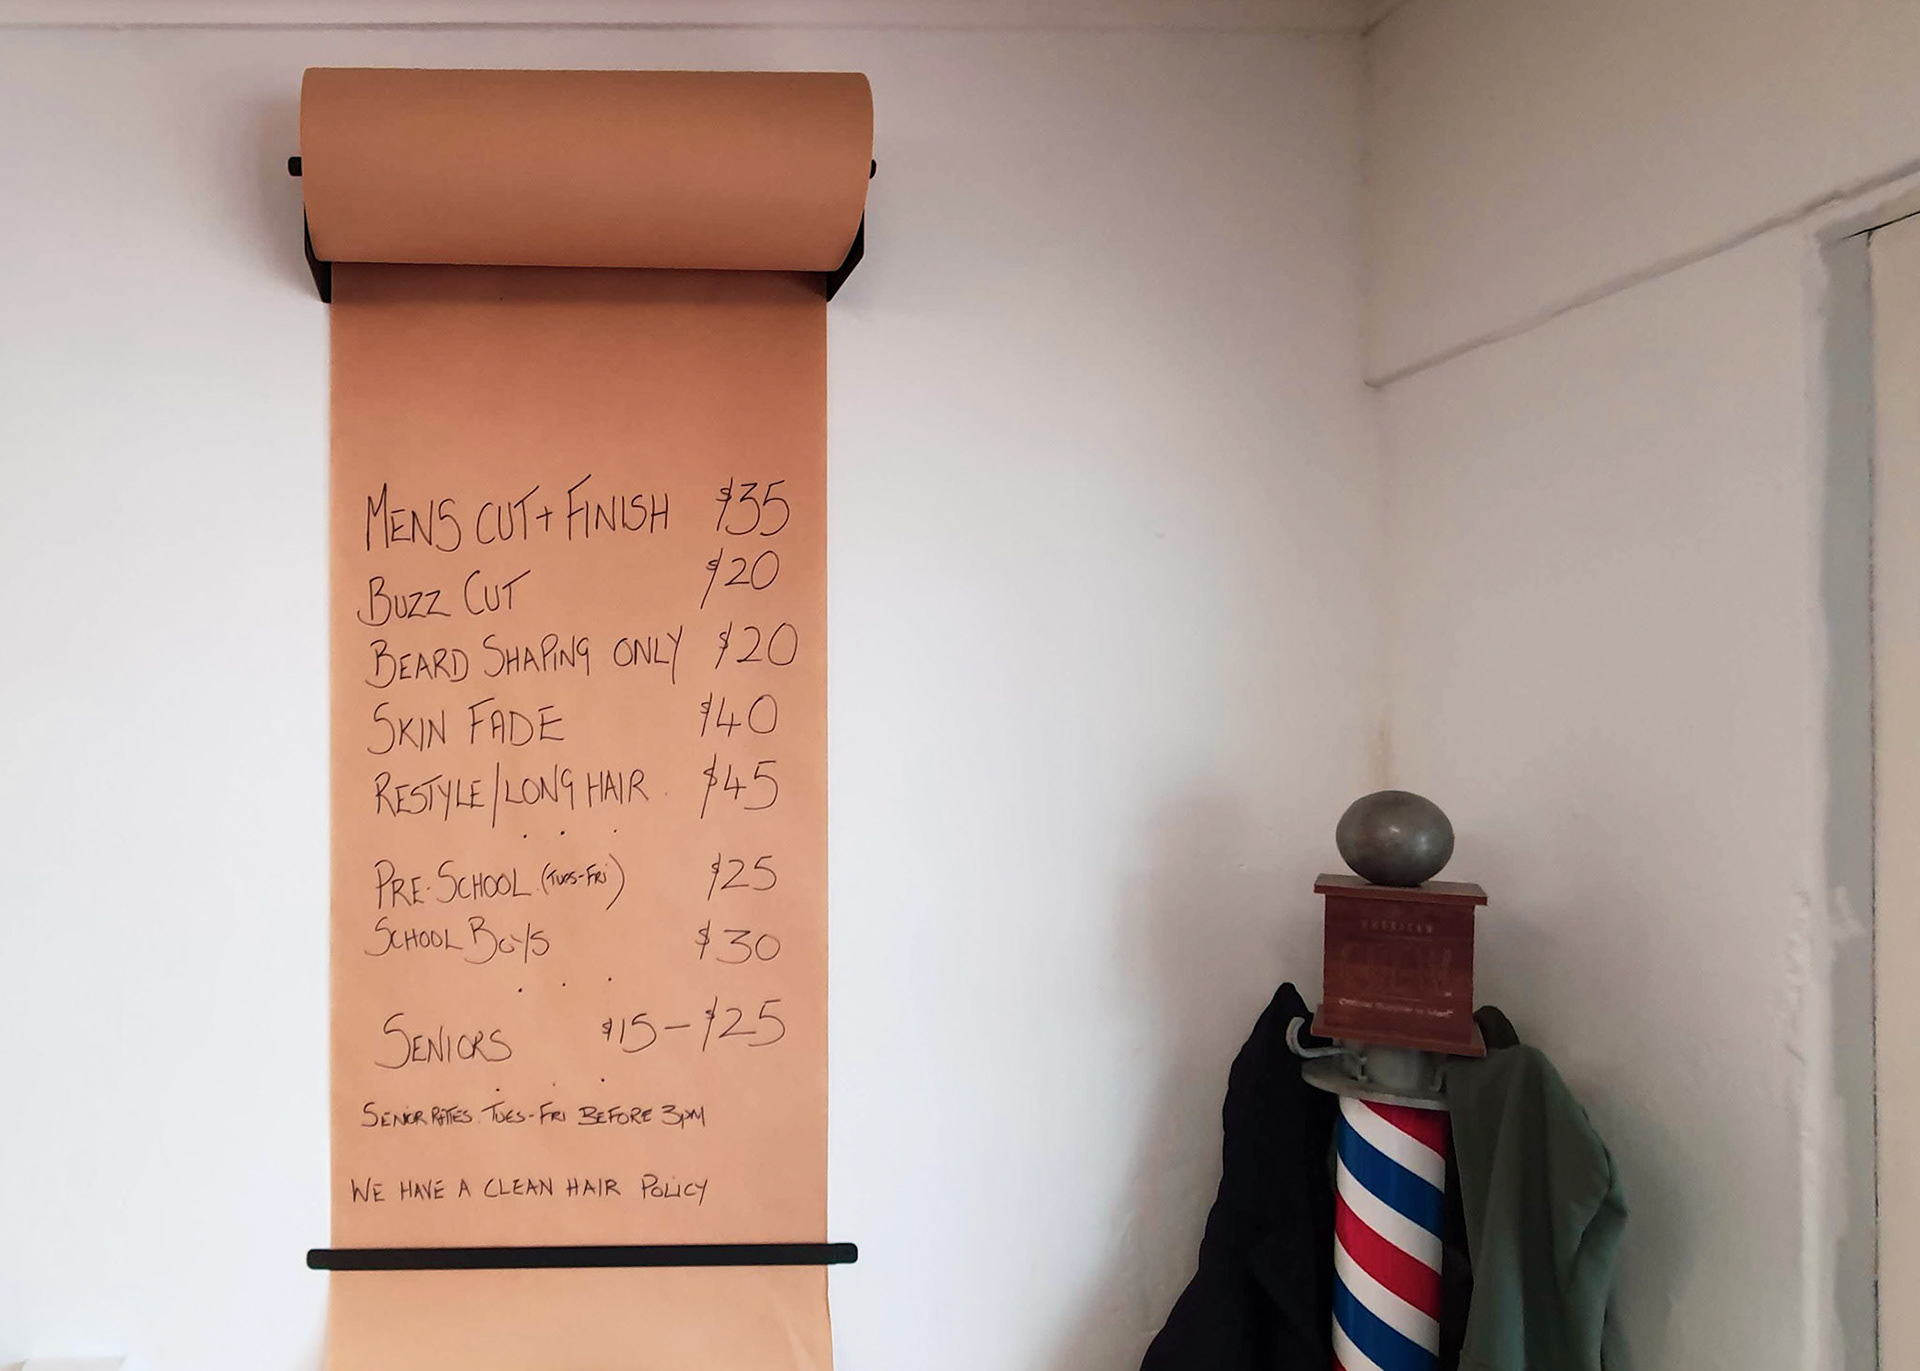 MENS CUT + FINISH $35
BUZZ CUT $20
BEARD SHAPING ONLY $20
SKIN FADE $40
RESTYLE/LONG HAIR $45
PRE-SCHOOL (TUES-FRI) $25
SCHOOL BOYS $30
SENIORS $15-$25
SENIOR RATES TUES-FRI BEFORE 3PM
WE HAVE A CLEAN HAIR POLICY
AMERICAN
CREW